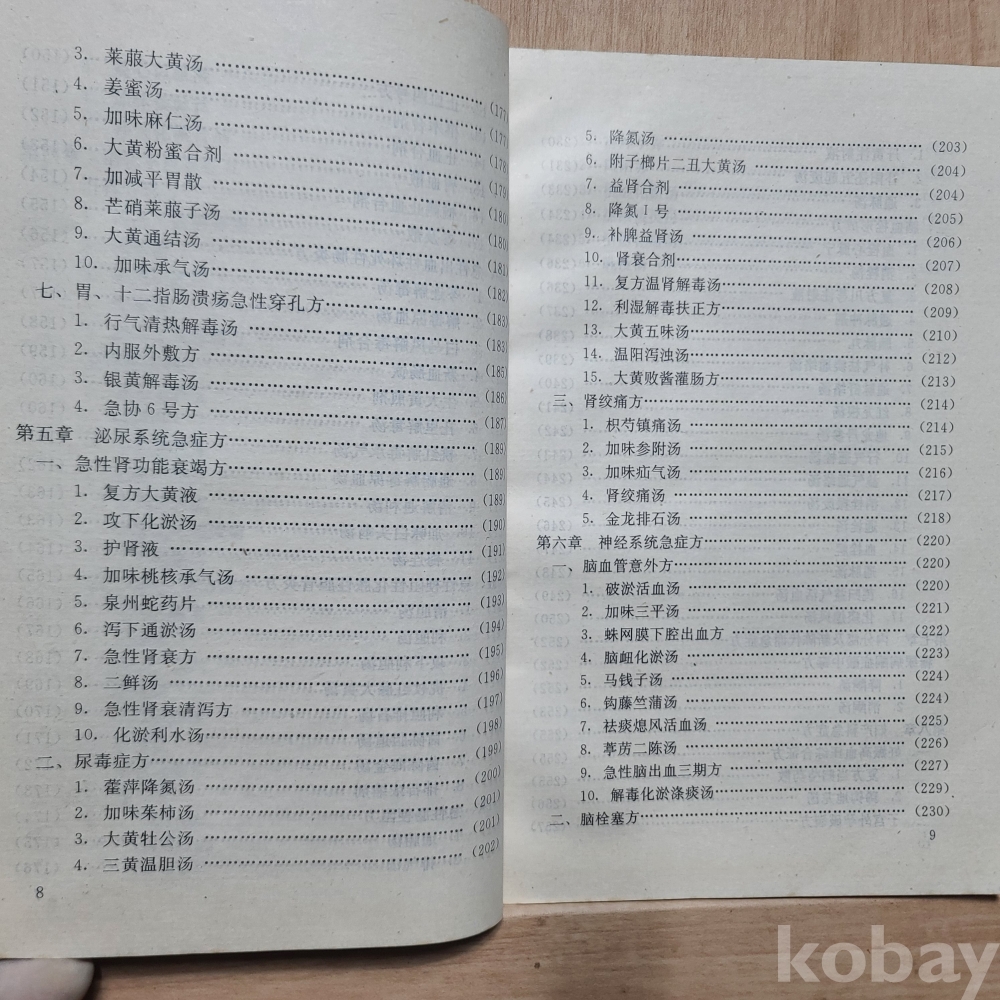 3. 莱菔大黄汤……(177)
4. 姜蜜汤……(177)
5. 加味麻仁汤……(177)
6. 大黄粉蜜合剂……(178)
7. 加减平胃散……(179)
8. 芒硝莱菔子汤……(180)
9. 大黄通结汤……(180)
10. 加味承气汤……(181)
七、胃、十二指肠溃疡急性穿孔方……(183)
1. 行气清热解毒汤……(183)
2. 内服外敷方……(185)
3. 银黄解毒汤……(186)
4. 急协6号方……(187)
第五章 泌尿系统急症方……(189)
一、急性肾功能衰竭方……(189)
1. 复方大黄液……(189)
2. 攻下化淤汤……(190)
3. 护肾液……(191)
4. 加味桃核承气汤……(192)
5. 泉州蛇药片……(193)
6. 泻下通淤汤……(194)
7. 急性肾衰方……(195)
8. 二鲜汤……(196)
9. 急性肾衰清泻方……(197)
10. 化淤利水汤……(198)
二、尿毒症方……(199)
1. 藿萍降氮汤……(200)
2. 加味茱柿汤……(201)
3. 大黄牡公汤……(201)
4. 三黄温胆汤……(202)
8
5. 降氮汤……(203)
6. 附子榔片二丑大黄汤……(204)
7. 益肾合剂……(204)
8. 降氮Ⅰ号……(205)
9. 补脾益肾汤……(206)
10. 肾衰合剂……(207)
11. 复方温肾解毒汤……(208)
12. 利湿解毒扶正方……(209)
13. 大黄五味汤……(210)
14. 温阳泻浊汤……(212)
15. 大黄败酱灌肠方……(213)
三、肾绞痛方……(214)
1. 枳芍镇痛汤……(214)
2. 加味参附汤……(215)
3. 加味疝气汤……(216)
4. 肾绞痛汤……(217)
5. 金龙排石汤……(218)
第六章 神经系统急症方……(220)
一、脑血管意外方……(220)
1. 破淤活血汤……(220)
2. 加味三平汤……(221)
3. 蛛网膜下腔出血方……(222)
4. 脑衄化淤汤……(223)
5. 马钱子汤……(224)
6. 钩藤竺蒲汤……(224)
7. 祛痰熄风活血汤……(225)
8. 葶苈二陈汤……(226)
9. 急性脑出血三期方……(227)
10. 解毒化淤涤痰汤……(229)
二、脑栓塞方……(230)
9
kobay